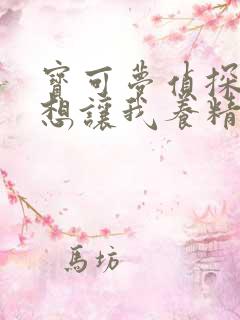 寶可夢偵探
想讓我養精
馬坊